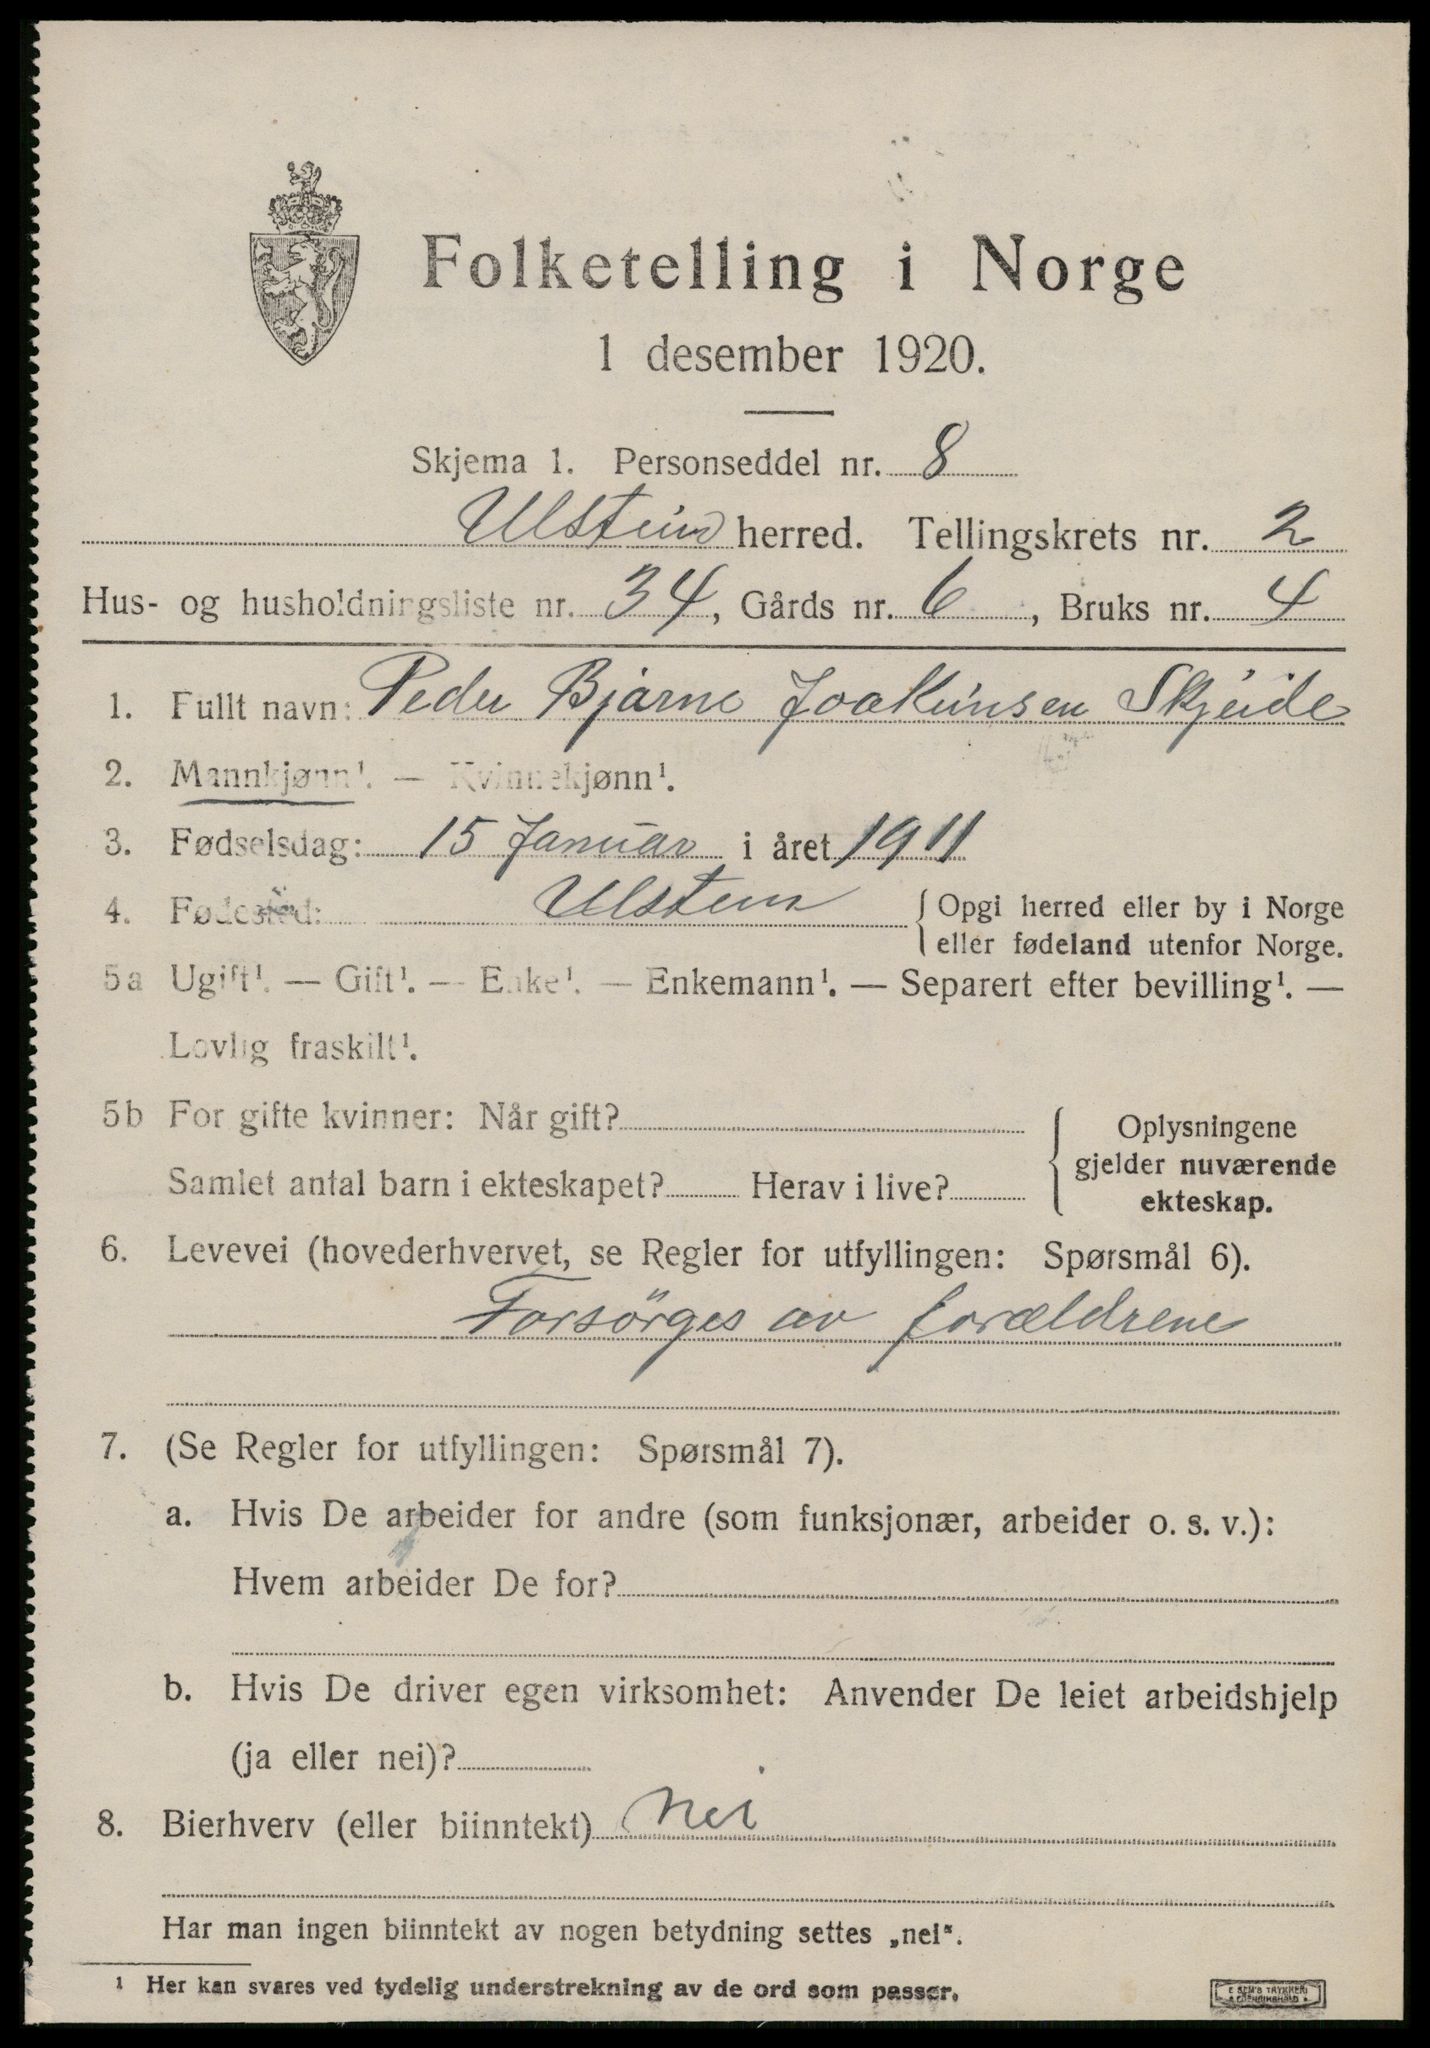 Folketelling i Norge
1 desember 1920.
Skjema 1. Personseddel nr. 8
Ulstein herred. Tellingskrets nr. 2
Hus- og husholdningsliste nr. 34, Gårds nr. 6, Bruks nr. 4
1. Fullt navn: Peder Bjarne Joakimsen Skjeide
2. Mannkjønn¹. — Kvinnekjønn¹.
3. Fødselsdag: 15 Januar i året 1911
4. Fødested: Ulstein { Opgi herred eller by i Norge
eller fødeland utenfor Norge.
5a Ugift¹. — Gift¹. — Enke¹. — Enkemann¹. — Separert efter bevilling¹. —
Lovlig fraskilt¹.
5b For gifte kvinner: Når gift?
Samlet antal barn i ekteskapet? Herav i live?
Oplysningene
gjelder nuværende
ekteskap.
6. Levevei (hovederhvervet, se Regler for utfyllingen: Spørsmål 6).
Forsörges av forældrene
7. (Se Regler for utfyllingen: Spørsmål 7).
a. Hvis De arbeider for andre (som funksjonær, arbeider o. s. v.):
Hvem arbeider De for?
b. Hvis De driver egen virksomhet: Anvender De leiet arbeidshjelp
(ja eller nei)?
8. Bierhverv (eller biinntekt) Nei
Har man ingen biinntekt av nogen betydning settes „nei“.
¹ Her kan svares ved tydelig understrekning av de ord som passer.